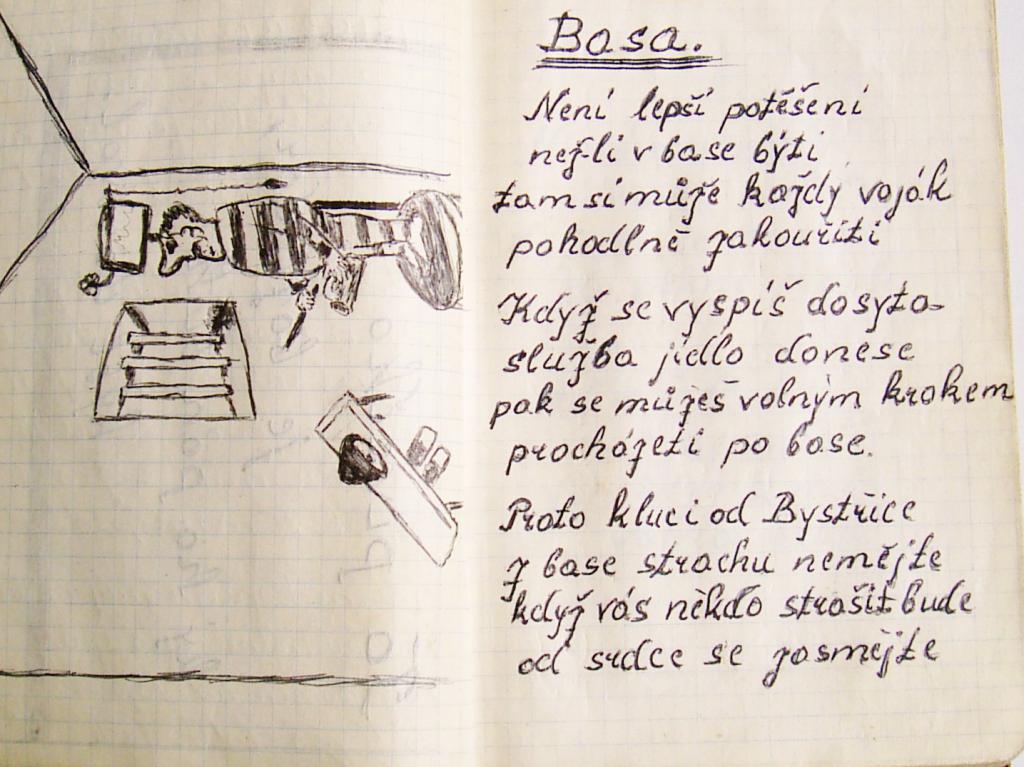 Basa.
Není lepší potěšení
nežli v base býti
tam si může každý voják
pohodlně zakouřiti
Když se vyspíš dosyta-
služba jídlo donese
pak se můžeš volným krokem
procházeti po base.
Proto kluci od Bystřice
z base strachu nemějte
když vás někdo strašit bude
od srdce se zasmějte